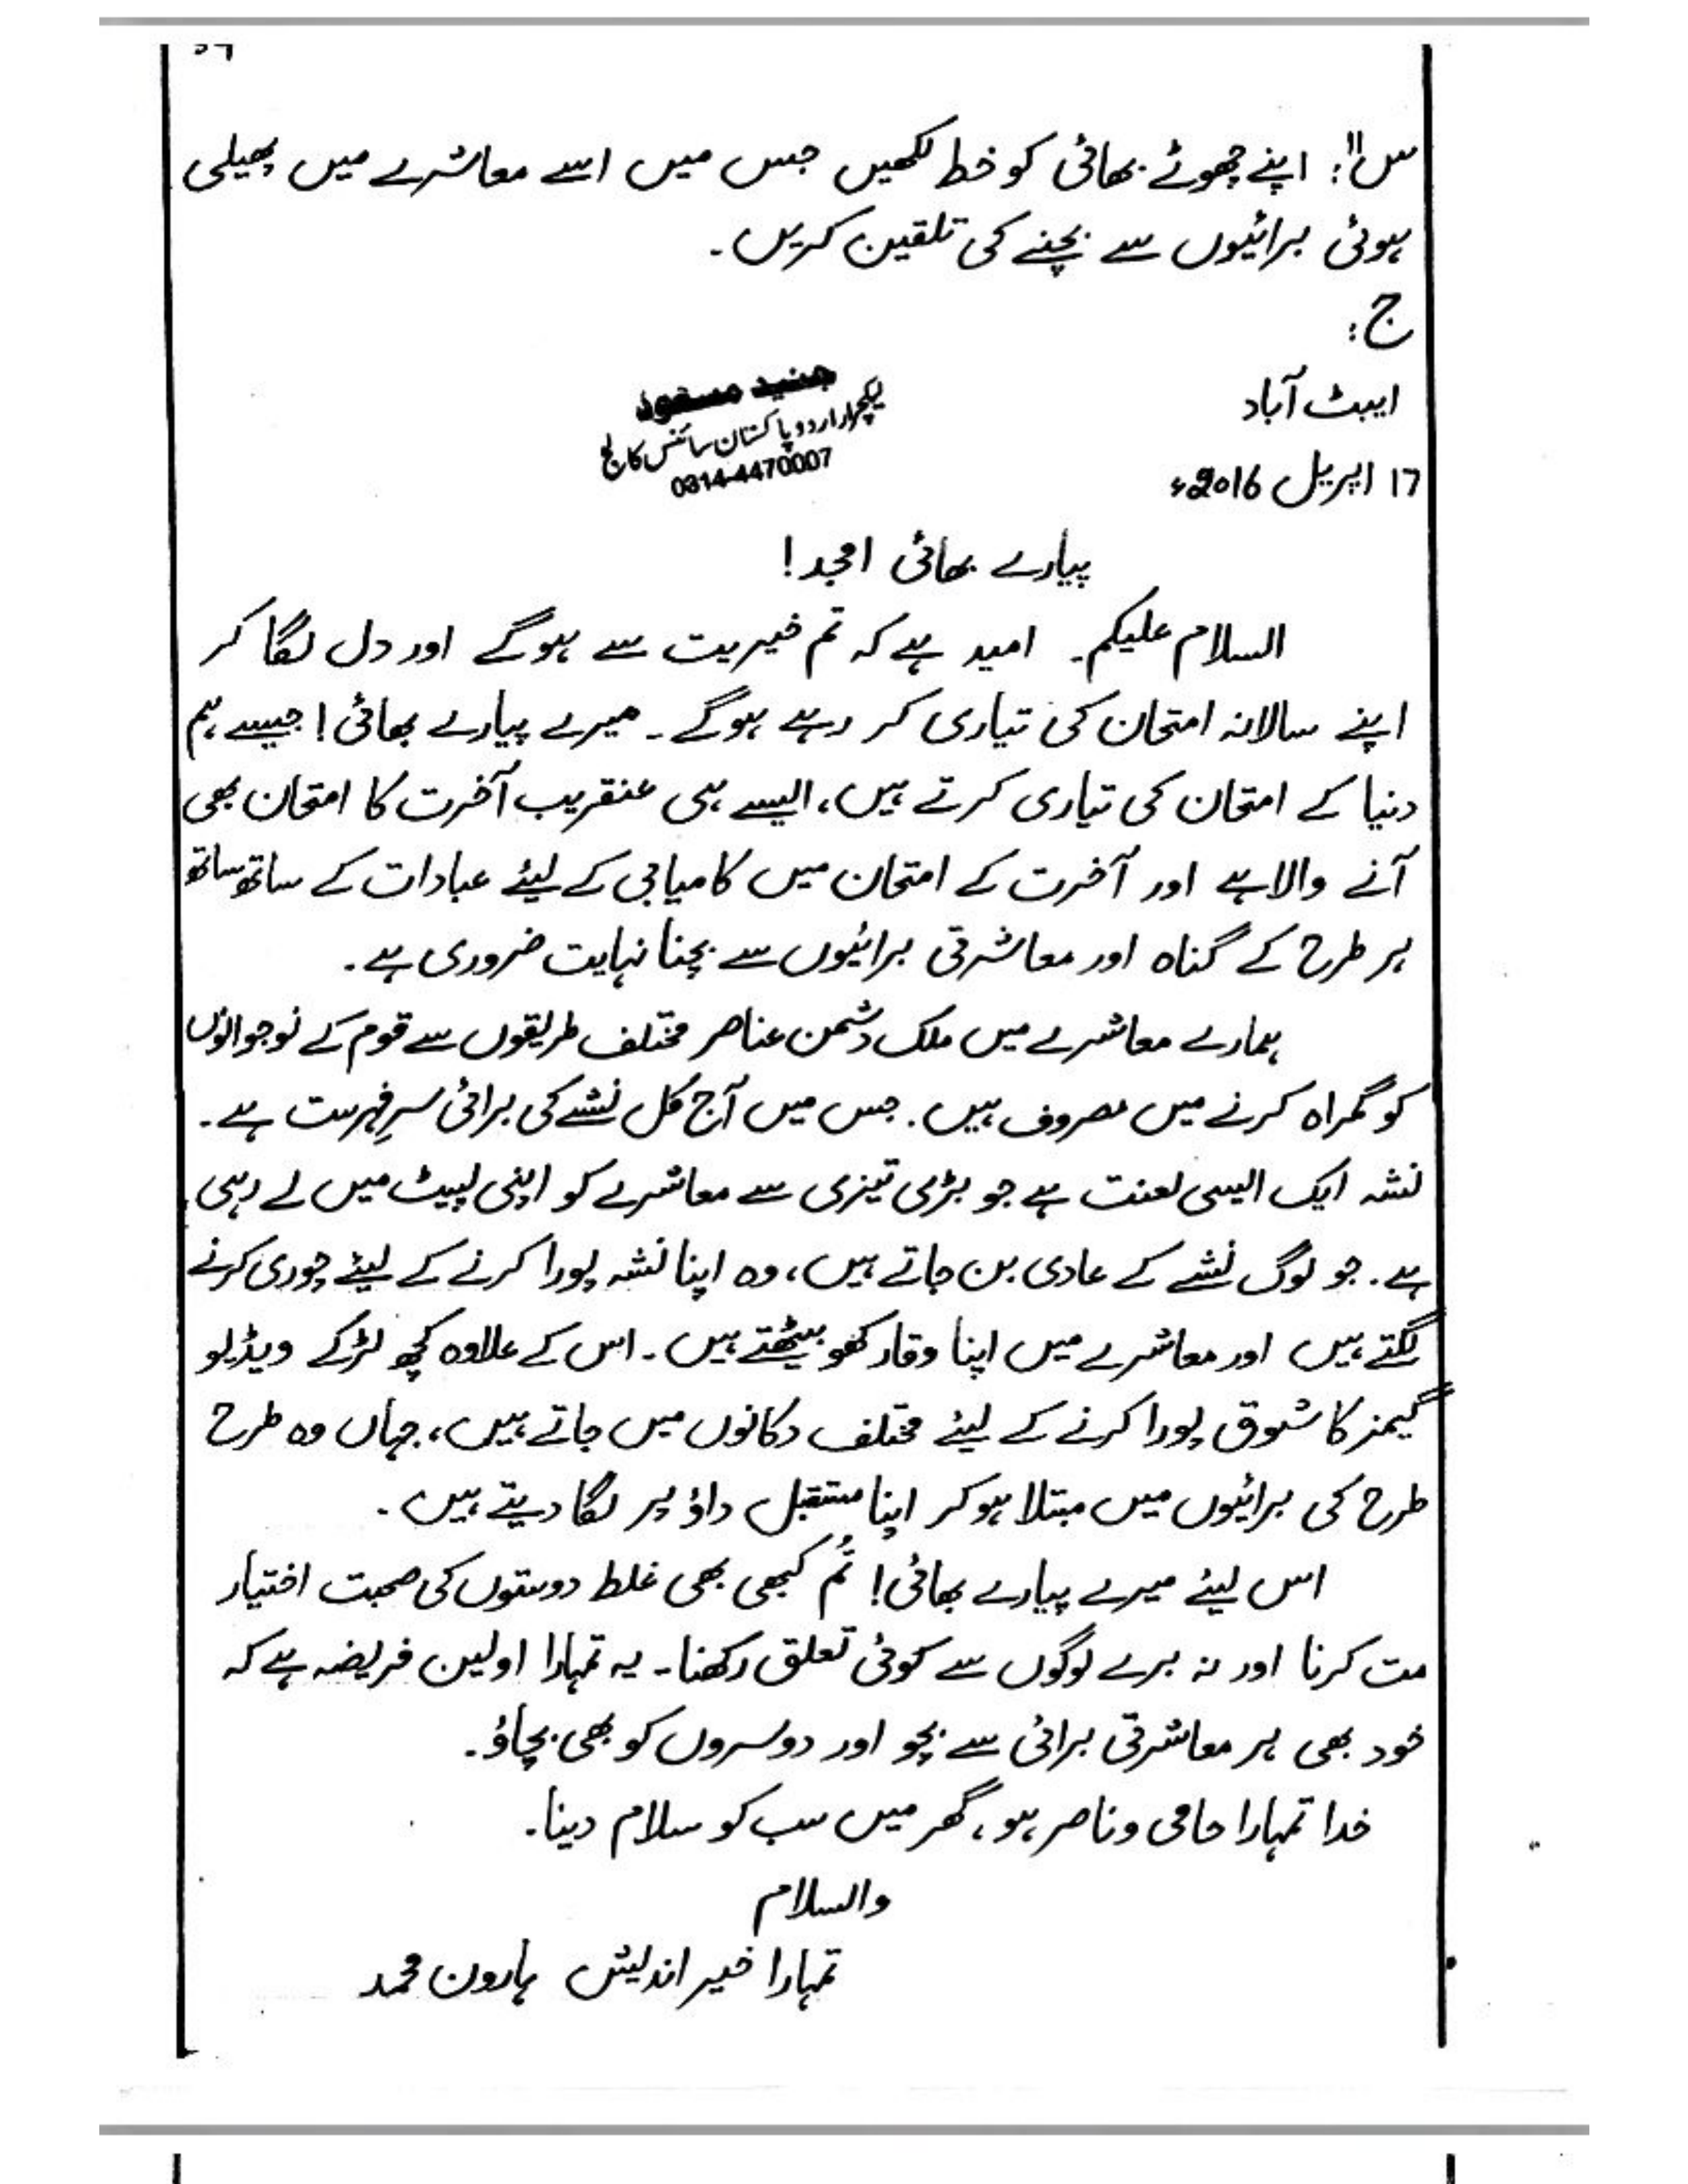 س۱۱: اپنے چھوٹے بھائی کو خط لکھیں جس میں اسے معاشرے میں پھیلی
ہوئی برائیوں سے بچنے کی تلقین کریں۔
ج:
جنید مسعود
لیکچرار اردو پاکستان سائنس کالج
0314-4470007
ایبٹ آباد
17 اپریل 2016ء
پیارے بھائی امجد!
السلام علیکم۔ امید ہے کہ تم خیریت سے ہوگے اور دل لگا کر
اپنے سالانہ امتحان کی تیاری کر رہے ہوگے۔ میرے پیارے بھائی! جیسے ہم
دنیا کے امتحان کی تیاری کرتے ہیں، ایسے ہی عنقریب آخرت کا امتحان بھی
آنے والا ہے اور آخرت کے امتحان میں کامیابی کے لیئے عبادات کے ساتھ ساتھ
ہر طرح کے گناہ اور معاشرتی برائیوں سے بچنا نہایت ضروری ہے۔
ہمارے معاشرے میں ملک دشمن عناصر مختلف طریقوں سے قوم کے نوجوانوں
کو گمراہ کرنے میں مصروف ہیں۔ جس میں آج کل نشے کی برائی سرِفہرست ہے۔
نشہ ایک ایسی لعنت ہے جو بڑی تیزی سے معاشرے کو اپنی لپیٹ میں لے رہی
ہے۔ جو لوگ نشے کے عادی بن جاتے ہیں، وہ اپنا نشہ پورا کرنے کے لیئے چوری کرنے
لگتے ہیں اور معاشرے میں اپنا وقار کھو بیٹھتے ہیں۔ اس کے علاوہ کچھ لڑکے ویڈیو
گیمز کا شوق پورا کرنے کے لیئے مختلف دکانوں میں جاتے ہیں، جہاں وہ طرح
طرح کی برائیوں میں مبتلا ہوکر اپنا مستقبل داؤ پر لگا دیتے ہیں۔
اس لیئے میرے پیارے بھائی! تُم کبھی بھی غلط دوستوں کی صحبت اختیار
مت کرنا اور نہ برے لوگوں سے کوئی تعلق رکھنا۔ یہ تمہارا اولین فریضہ ہے کہ
خود بھی ہر معاشرتی برائی سے بچو اور دوسروں کو بھی بچاؤ۔
خدا تمہارا حامی و ناصر ہو، گھر میں سب کو سلام دینا۔
والسلام
تمہارا خیر اندیش ہارون محمد